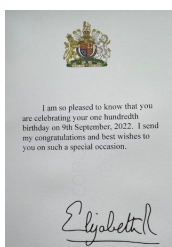 I am so pleased to know that you
are celebrating your one hundredth
birthday on 9th September, 2022. I send
my congratulations and best wishes to
you on such a special occasion.
Elizabeth R